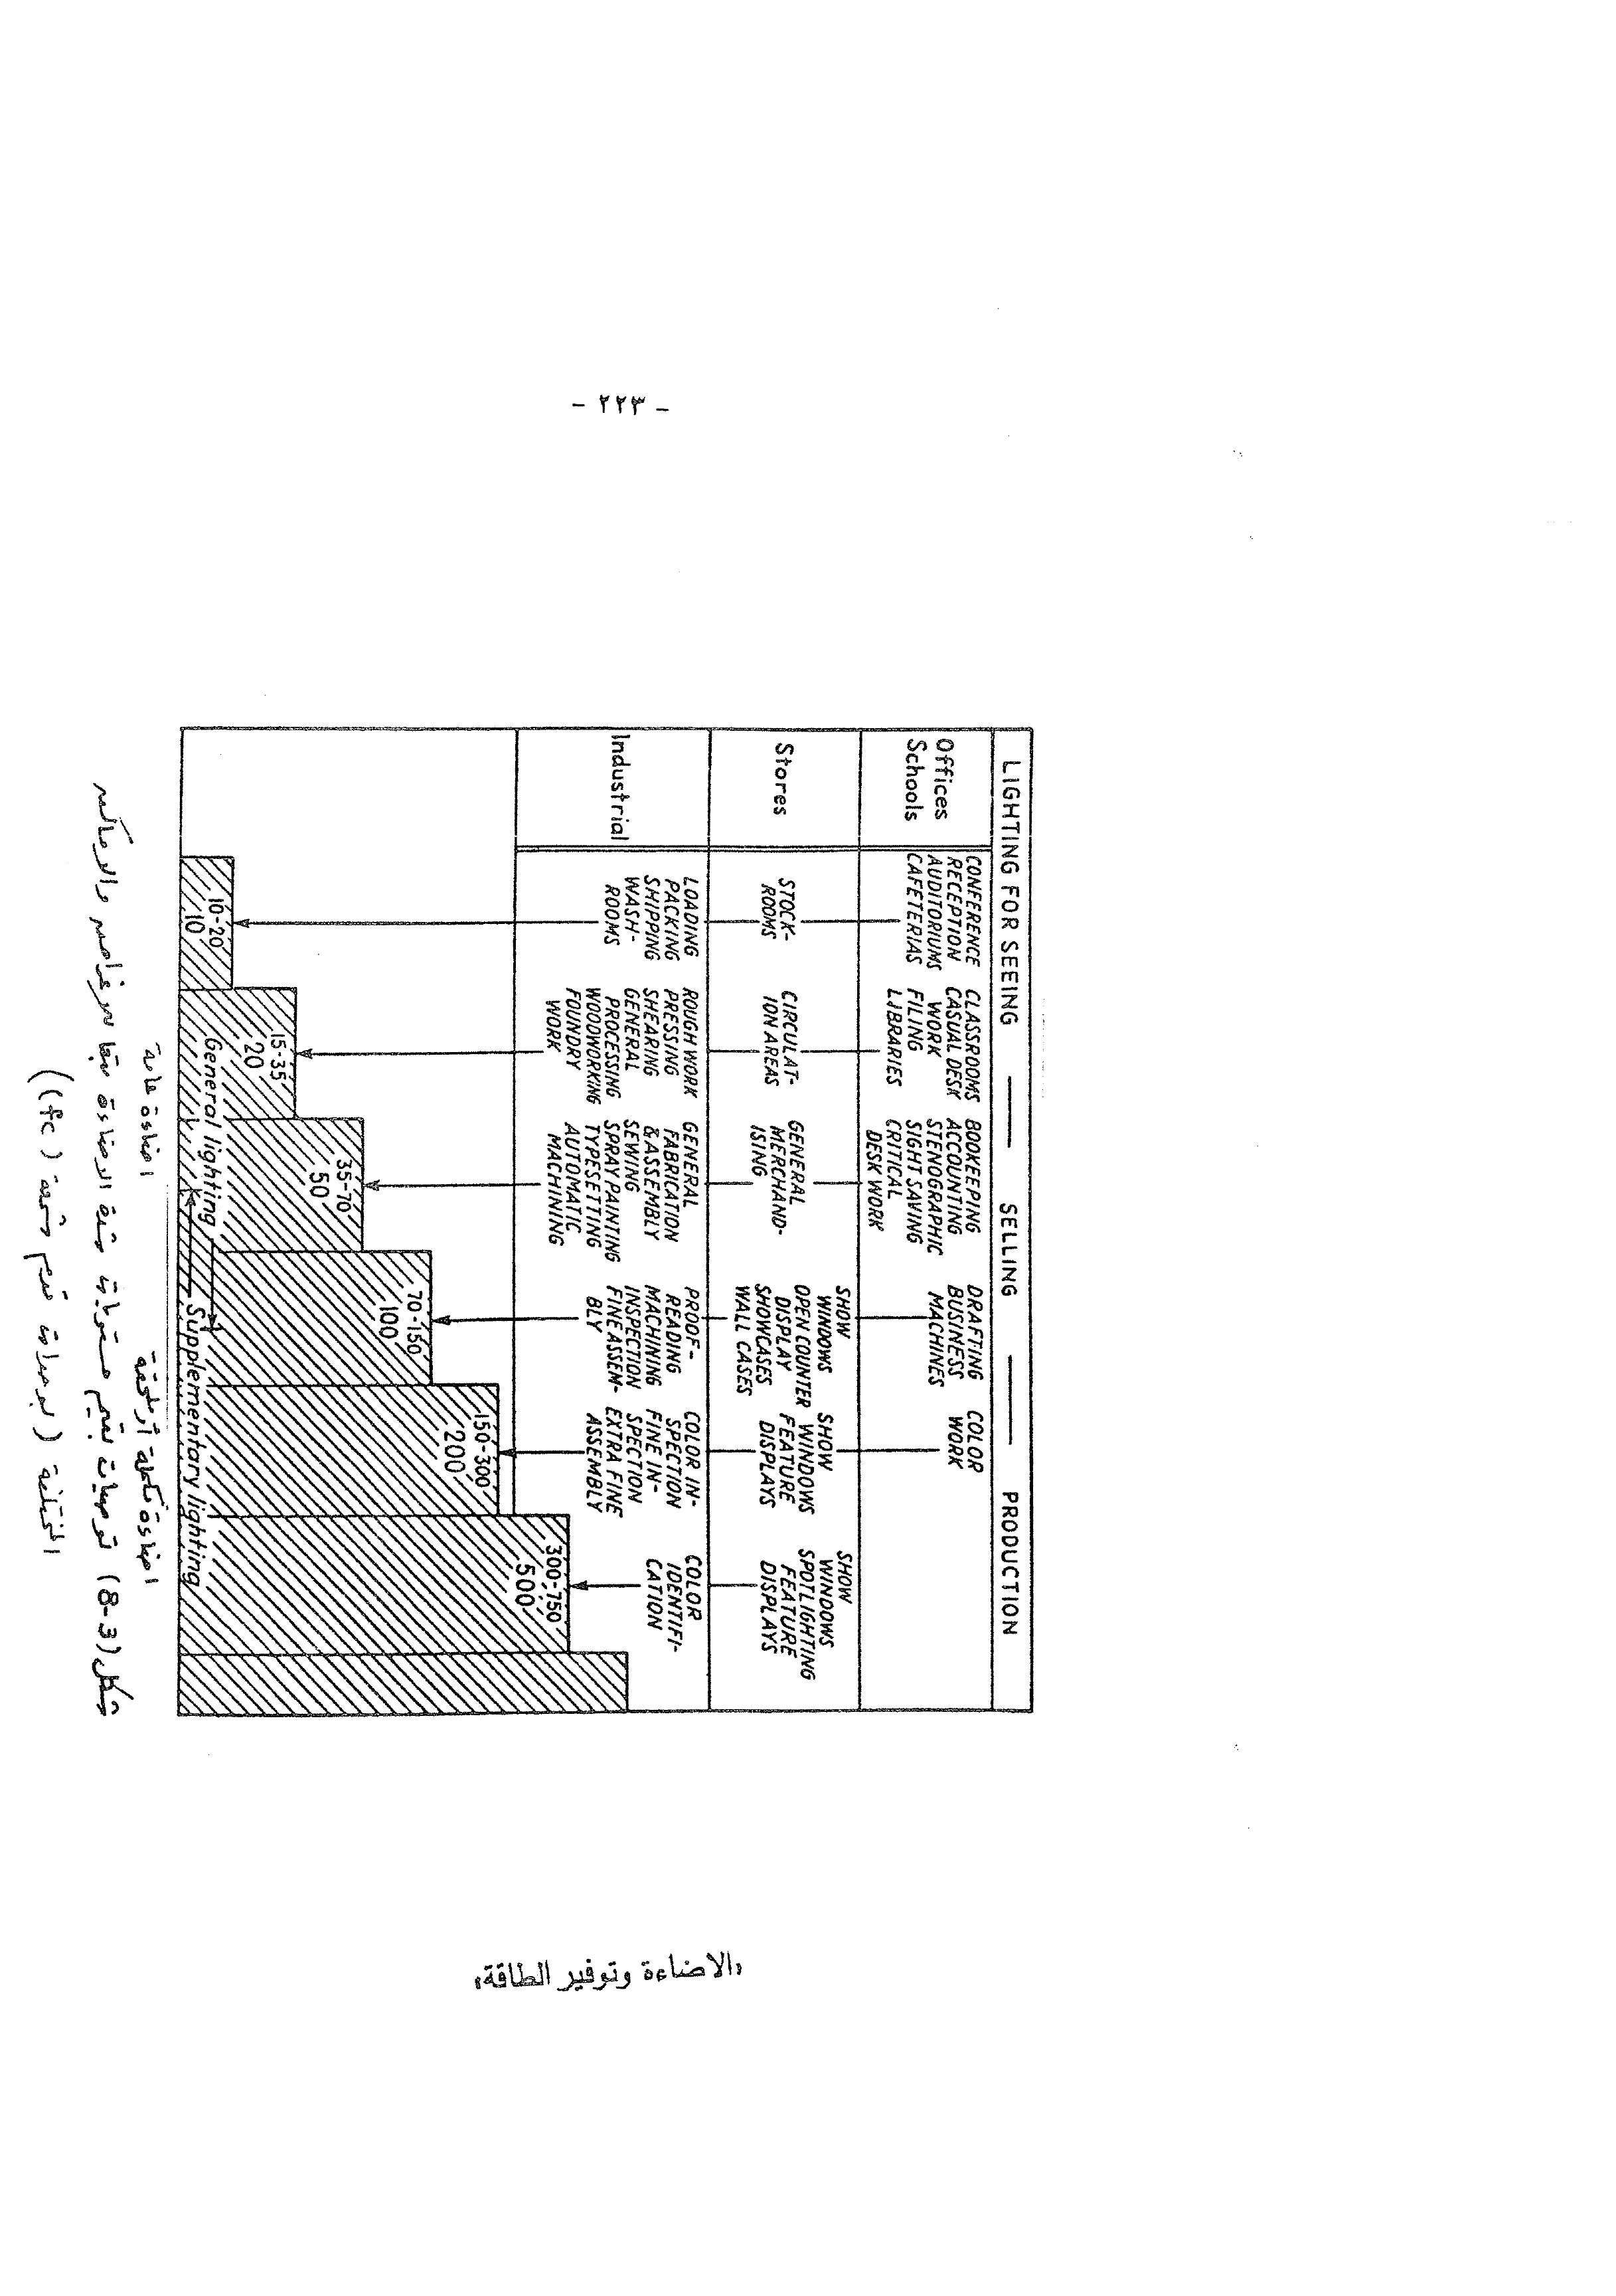 - ٢٢٣ -
LIGHTING FOR SEEING —— SELLING —— PRODUCTION
Offices
Schools
CONFERENCE
RECEPTION
AUDITORIUMS
CAFETERIAS
CLASSROOMS
CASUAL DESK
WORK
FILING
LIBRARIES
BOOKEEPING
ACCOUNTING
STENOGRAPHIC
SIGHT SAVING
CRITICAL
DESK WORK
DRAFTING
BUSINESS
MACHINES
COLOR
WORK
Stores
STOCK-
ROOMS
CIRCULAT-
ION AREAS
GENERAL
MERCHAND-
ISING
SHOW
WINDOWS
OPEN COUNTER
DISPLAY
SHOWCASES
WALL CASES
SHOW
WINDOWS
FEATURE
DISPLAYS
SHOW
WINDOWS
SPOTLIGHTING
FEATURE
DISPLAYS
Industrial
LOADING
PACKING
SHIPPING
WASH-
ROOMS
ROUGH WORK
PRESSING
SHEARING
GENERAL
PROCESSING
WOODWORKING
FOUNDRY
WORK
GENERAL
FABRICATION
& ASSEMBLY
SEWING
SPRAY PAINTING
TYPESETTING
AUTOMATIC
MACHINING
PROOF-
READING
MACHINING
INSPECTION
FINE ASSEM-
BLY
COLOR IN-
SPECTION
FINE IN-
SPECTION
EXTRA FINE
ASSEMBLY
COLOR
IDENTIFI-
CATION
10-20
10
15-35
20
35-70
50
70-150
100
150-300
200
300-750
500
General lighting
Supplementary lighting
اضاءة عامة
اضاءة تكميلية أو ملحقة
شكل (3-8) توصيات بقيم مستويات شدة الاضاءة تبعا للأغراض والاماكن
المختلفة (بوحدات قدم شمعة (fc))
«الاضاءة وتوفير الطاقة»